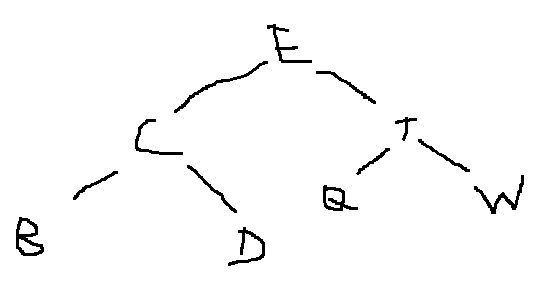 E
C T
B D Q W